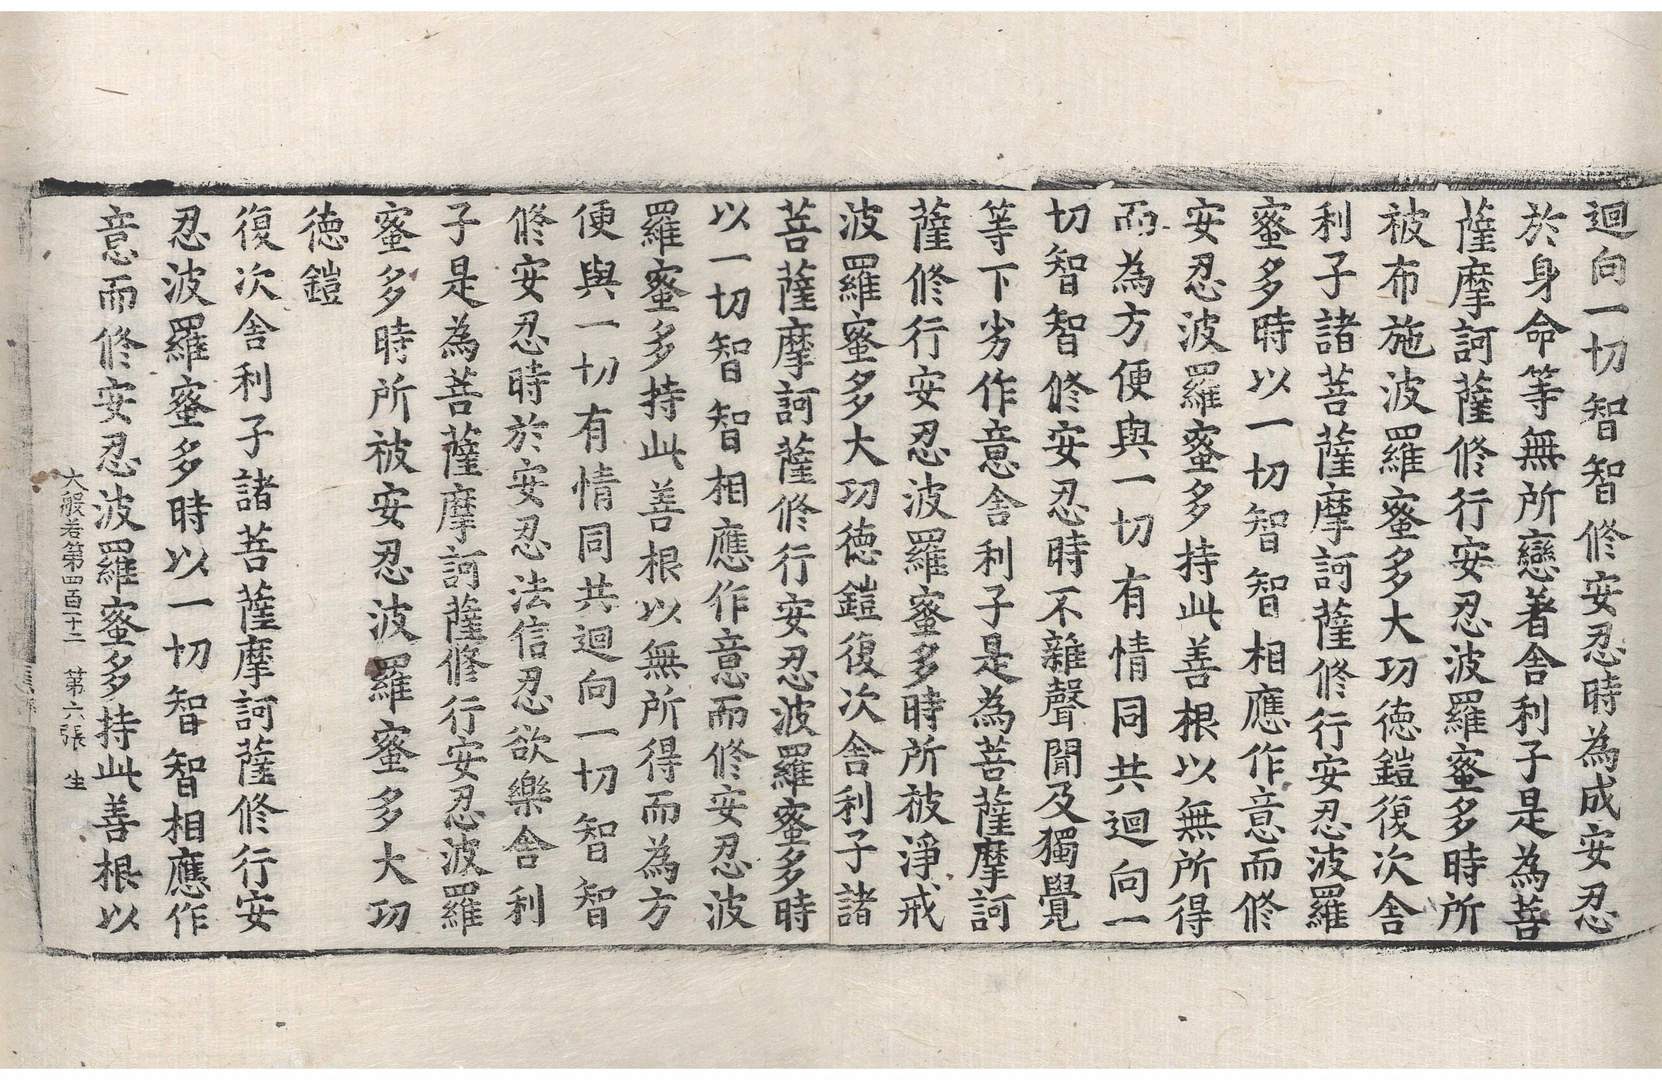 迴向一切智智修安忍時為成安忍
於身命等無所戀著舍利子是為菩
薩摩訶薩修行安忍波羅蜜多時所
被布施波羅蜜多大功徳鎧復次舍
利子諸菩薩摩訶薩修行安忍波羅
蜜多時以一切智智相應作意而修
安忍波羅蜜多持此善根以無所得
而為方便與一切有情同共迴向一
切智智修安忍時不雜聲聞及獨覺
等下劣作意舍利子是為菩薩摩訶
薩修行安忍波羅蜜多時所被淨戒
波羅蜜多大功徳鎧復次舍利子諸
菩薩摩訶薩修行安忍波羅蜜多時
以一切智智相應作意而修安忍波
羅蜜多持此善根以無所得而為方
便與一切有情同共迴向一切智智
修安忍時於安忍法信忍欲樂舍利
子是為菩薩摩訶薩修行安忍波羅
蜜多時所被安忍波羅蜜多大功
徳鎧
復次舍利子諸菩薩摩訶薩修行安
忍波羅蜜多時以一切智智相應作
意而修安忍波羅蜜多持此善根以
大般若第四百十二 第六張 生